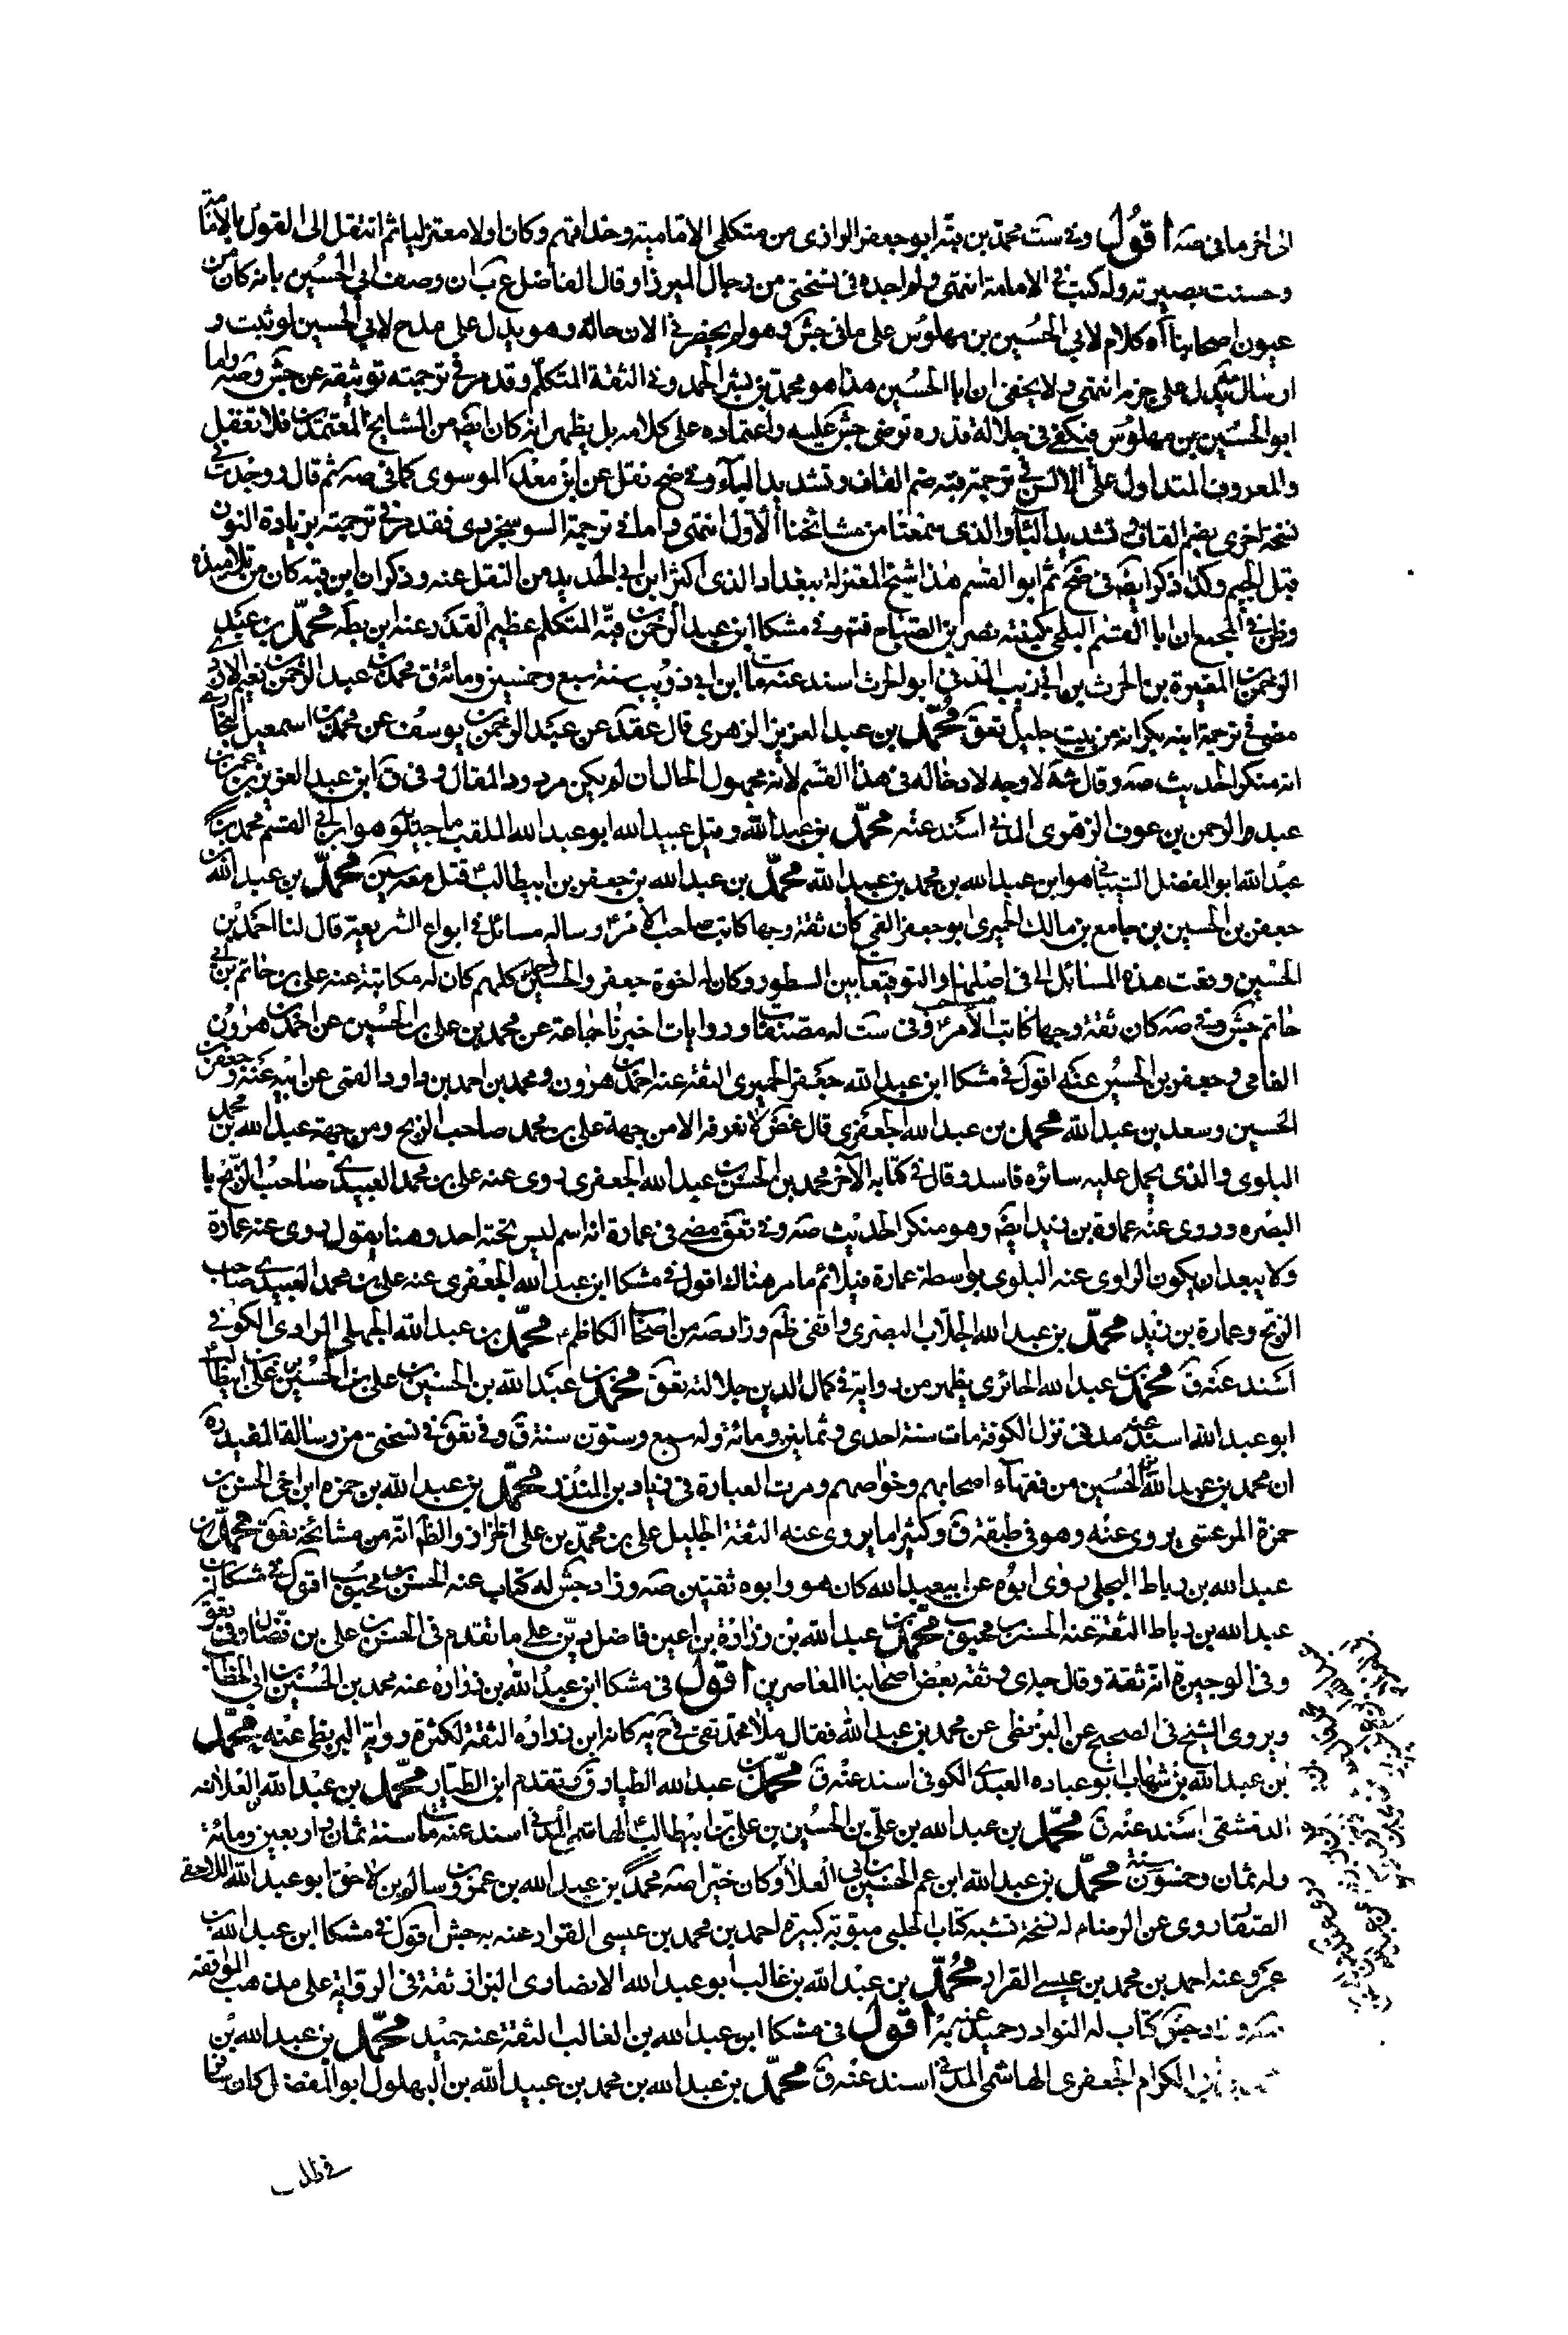 الى اخر ما فى صه اقول وفى ست محمد بن قبه ابو جعفر الرازى من متكلمى الامامية وحذاقهم وكان اولا معتزليا ثم انتقل الى القول بالامامة
وحسنت بصيرته وله كتب فى الامامة انتهى ولم اجده فى نسختى من رجال الميرزا وقال الفاضل عب ان وصف ابى الحسين بانه كان من
عيون اصحابنا آه كلام لابى الحسين بن مهلوس على ما فى جش وهو لم يحضر فى الان حاله وهو يدل على مدح لابى الحسين لو ثبت و
ارسال يدل على جزم انتهى ولا يخفى ان ابا الحسين هذا هو محمد بن بشر الحمدوفى الثقة المتكلم وقد مر فى ترجمته توثيقه عن جش وصه واما
ابو الحسين بن مهلوس فيكفى فى جلالة قدره ترضى جش عليه واعتماده على كلامه بل يظهر انه كان ايضا من المشايخ المعتمدين فلا تغفل
والمعروف المتداول على الالسن فى ترجمة قبه ضم القاف وتشديد الباء وفى ضح نقل عن ابن معد الموسوى كما فى صه ثم قال ووجدت فى
نسخة اخرى بضم القاف وتشديد الباء والذى سمعنا من مشائخنا الاول انتهى واما فى ترجمة السوسنجردى فقد مر فى ترجمته بزيادة النون
قبل الجيم وكذا ذكر ايضا فى ضح ثم ابو القسم هذا شيخ المعتزلة ببغداد الذى اكثر ابن ابى الحديد من النقل عنه وذكر ان ابن قبه كان من تلاميذه
وظن فى المجمع ان ابا القسم البلخى كنيته نصر بن الصباح فتم وفى مشكا ابن عبد الرحمن بن قبه المتكلم عظيم القدر عنه ابن بطه محمد بن عبد
الرحمن بن المغيرة بن الحرث بن ابى ذيب المدنى ابو الحرث اسند عنه مات ابن ابى ذويب سنة سبع وخمسين ومائة ق محمد بن عبد الرحمن بن نعيم الازدى
مضى فى ترجمة ابنه بكر انه من بيت جليل تعق محمد بن عبد العزيز الزهرى قال عقد عن عبد الرحمن بن يوسف عن محمد بن اسمعيل البخارى
انه منكر الحديث صه وقال شه لا وجه لادخاله فى هذا القسم لانه مجهول الحال ان لم يكن مردود المقال وفى ق ابن عبد العزيز بن عمر بن
عبد الرحمن بن عوف الزهرى المدنى اسند عنه محمد بن عبد الله وقيل عبيد الله ابو عبد الله الملقب ماجيلويه هو ابن ابى القسم محمد بن
عبد الله ابو المفضل الشيبانى هو ابن عبد الله بن محمد بن عبيد الله محمد بن عبد الله بن جعفر بن ابيطالب قتل معه سين محمد بن عبد الله بن
جعفر بن الحسين بن جامع بن مالك الحميرى ابو جعفر القمى كان ثقة وجها كاتب صاحب الامر وساله مسائل فى ابواب الشريعة قال لنا احمد بن
الحسين وقعت هذه المسائل الى فى اصلها والتوقيعات بين السطور وكان له اخوة جعفر والحسين واحمد كلهم كان له مكاتبة عنه على بن حاتم بن ابى
حاتم جش وفى صه كان ثقة وجها كاتب صاحب الامر وفى ست له مصنفات وروايات اخبرنا جماعة عن محمد بن على بن الحسين عن احمد بن هارون
الفامى وجعفر بن الحسين عنه اقول فى مشكا ابن عبد الله جعفر الحميرى الثقة عنه احمد بن هرون ومحمد بن احمد بن داود القمى عن ابيه عنه وجعفر بن
الحسين وسعد بن عبد الله محمد بن عبد الله الجعفرى قال غض لا نعرفه الا من جهة على بن محمد صاحب الزنج ومن جهة عبد الله بن محمد
البلوى والذى يحمل عليه سائره فاسد وقال فى كتابه الآخر محمد بن الحسن بن عبد الله الجعفرى روى عنه على بن محمد العبيدى صاحب الزنج با
البصره وروى عنه عمارة بن زيد ايضا وهو منكر الحديث صه وفى تعق مضى فى عمارة انه اسم ليس تحته احد وهنا يقول روى عنه عمارة
ولا يبعد ان يكون الراوى عنه البلوى بواسطة عمارة فيلائم ما مر هناك اقول فى مشكا ابن عبد الله الجعفرى عنه على بن محمد العبيدى صاحب
الزنج وعمارة بن زيد محمد بن عبد الله الجلاب البصرى واقفى ظم وزاد صه من اصحاب الكاظم محمد بن عبد الله الجهلى المرادى الكوفى
اسند عنه ق محمد بن عبد الله الحائرى يظهر من رواية فى كمال الدين جلالته تعق محمد بن عبد الله بن الحسين بن على بن الحسين بن على بن ابيطالب
ابو عبد الله اسند عنه مدنى نزل الكوفة مات سنة احدى وثمانين ومائة وله سبع وستون سنة ق وفى تعق فى نسختى من رسالة المفيد ره
ان محمد بن عبد الله بن الحسين من فقهاء اصحابهم وخواصهم ومرت العبارة فى زياد بن المنذر محمد بن عبد الله بن حمزه ابن اخى الحسن بن
حمزة المرعشى يروى عنه وهو فى طبقة ق وكثيرا ما يروى عنه الثقة الجليل على بن محمد بن على الخزاز والظ انه من مشائخه تعق محمد بن
عبد الله بن رباط البجلى روى ابوه عن ابيعبد الله كان هو وابوه ثقتين صه وزاد جش له كتاب عنه الحسن بن محبوب اقول فى مشكا ابن
عبد الله بن رباط الثقة عنه الحسن بن محبوب محمد بن عبد الله بن زرارة بن اعين فاضل دين على ما تقدم فى الحسن بن على بن فضال وفى تعق
وفى الوجيزة انه ثقة وقال جدى وثقه بعض اصحابنا المعاصرين اقول فى مشكا ابن عبد الله بن زرارة عنه محمد بن الحسين بن ابى الخطاب
ويروى الشيخ فى الصحيح عن البزنظى عن محمد بن عبد الله فقال ملا محمد تقى فى ح يه كانه ابن زرارة الثقة لكثرة رواية البزنظى عنه محمد
بن عبد الله بن شهاب ابو عباده العبدى الكوفى اسند عنه ق محمد بن عبد الله الطيار ق تقدم ابن الطيار محمد بن عبد الله العلانه
الدمشقى اسند عنه ق محمد بن عبد الله بن على بن الحسين بن على بن ابيطالب الهاشمى المدنى اسند عنه مات سنة ثمان واربعين ومائة
وله ثمان وخمسون سنة محمد بن عبد الله ابن عم الحسين بن ابى العلا وكان خيرا صه محمد بن عبد الله بن عمرو بن سالم بن لاحق ابو عبد الله اللاحقى
الصفار روى عن الرضا له نسخة تشبه كتاب الحلبى مبوبة كبيرة احمد بن محمد بن عيسى القراد عنه به جش اقول فى مشكا ابن عبد الله بن
عمرو عنه احمد بن محمد بن عيسى القراد محمد بن عبد الله بن غالب ابو عبد الله الانصارى البزاز ثقة فى الرواية على مذهب الواقفة
صه وزاد جش كتاب له النوادر حميد عنه به اقول فى مشكا ابن عبد الله بن الغالب الثقة عنه حميد محمد بن عبد الله بن
الكرام الجعفرى الهاشمى المدنى اسند عنه ق محمد بن عبد الله بن محمد بن عبيد الله بن البهلول ابو المفضل كان سافر
فى طلب